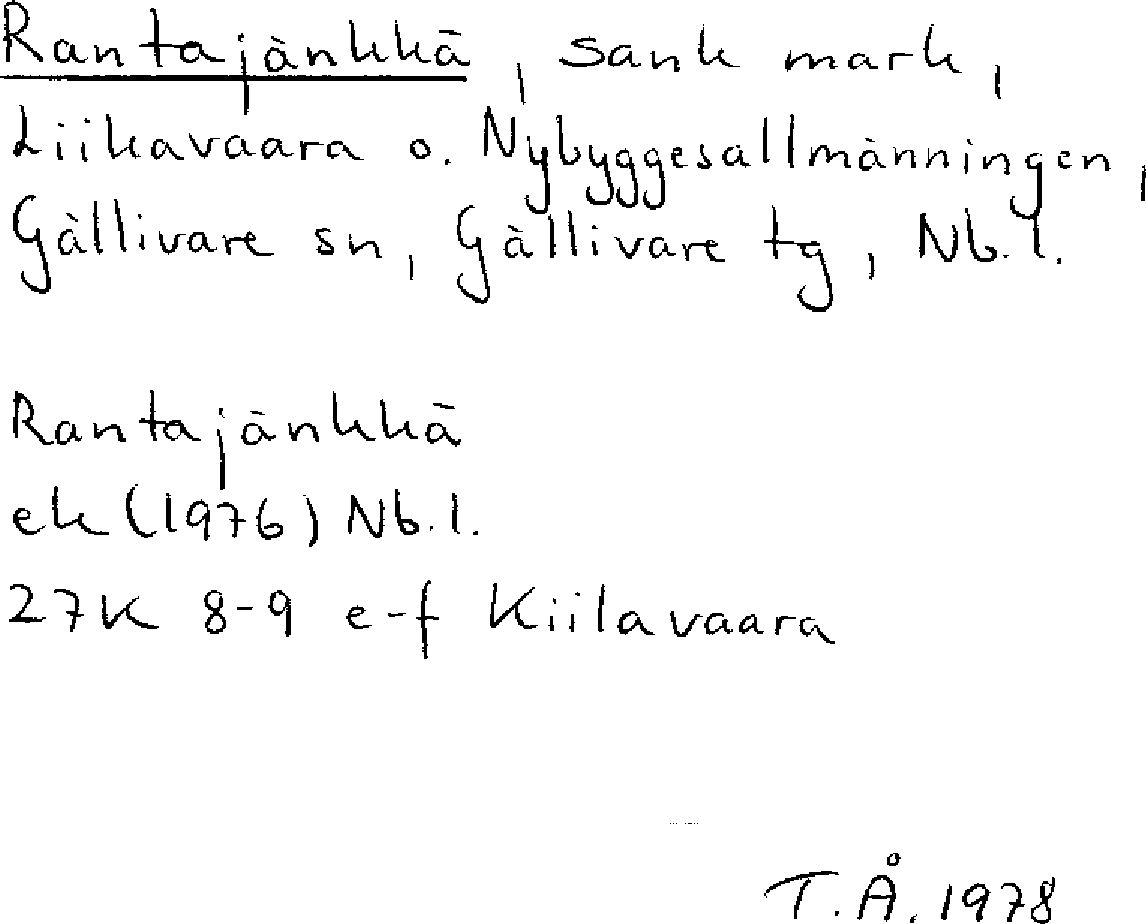 Rantajänkkä, sank mark,
Liikavaara o. Nybyggesallmänningen,
Gällivare sn, Gällivare tg, Nb. l.
Rantajänkkä
ek (1976) Nb. l.
27K 8-9 e-f Kiilavaara
T.Å. 1978